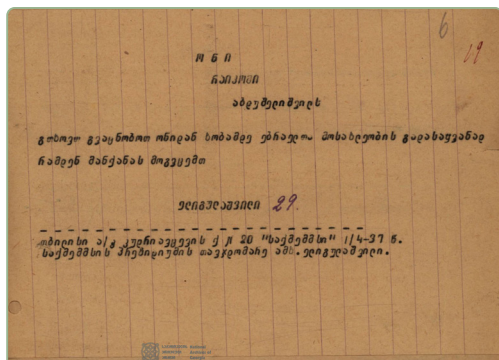 6
19
ონი
რაიკომი
აბდუშელიშვილს
გთხოვთ გვაცნობოთ ონიდან ხობამდე ებრაელთა მოსახლეობის გადასაყვანად
რამდენ მანქანას მოგვცემთ
ელიგულაშვილი 29.
თბილისი ა/კ კუდრიავცევის ქ № 20 "საქშემმსი" 1/4-37 წ.
საქშემმსის პრეზიდიუმის თავჯდომარე ამხ.ელიგულაშვილი.